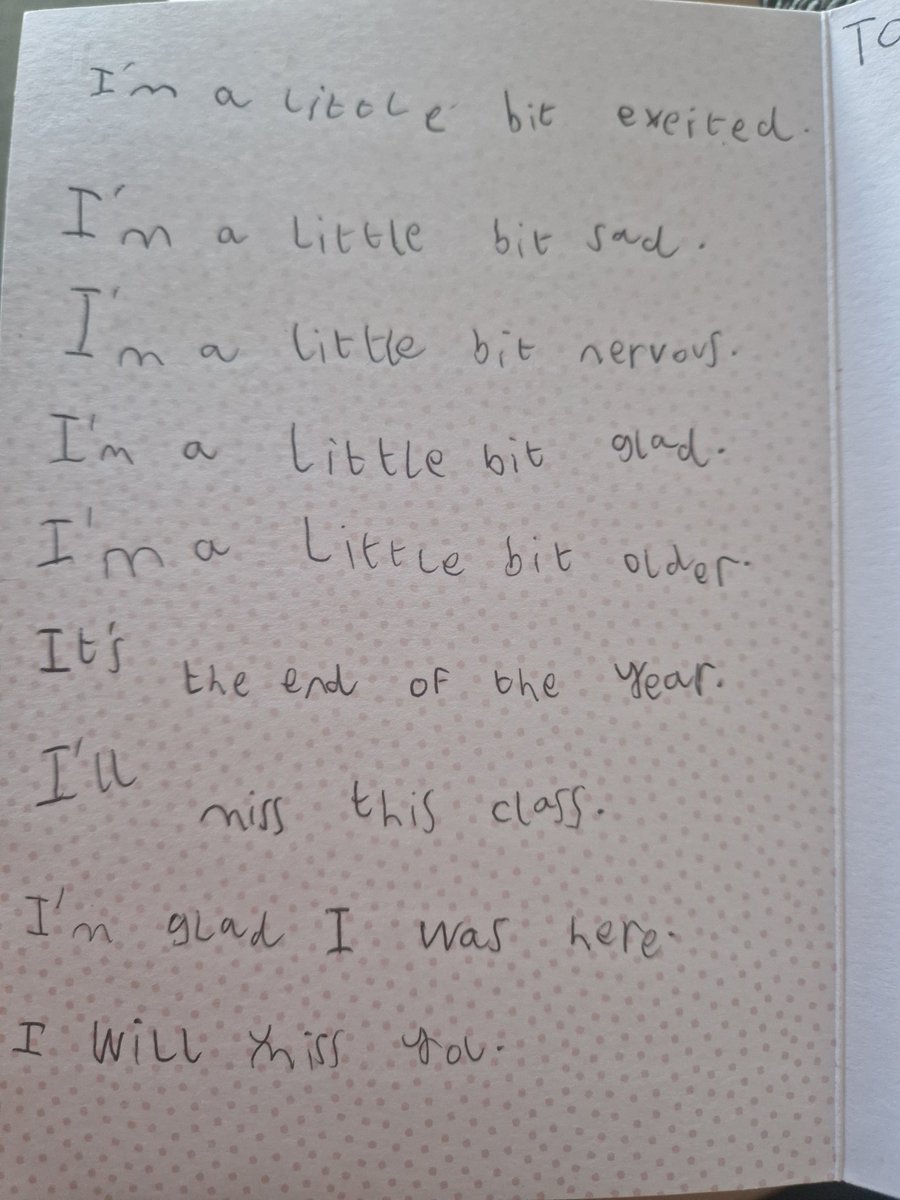 I'm a little bit excited.
I'm a little bit sad.
I'm a little bit nervous.
I'm a little bit glad.
I'm a little bit older.
It's the end of the year.
I'll miss this class.
I'm glad I was here.
I will miss you.